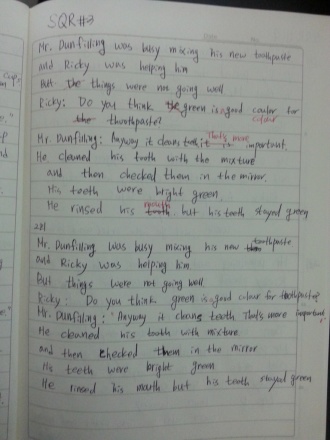 SQR #3
Mr. Dunfilling was busy mixing his new toothpaste
and Ricky was helping him
But the things were not going well
Ricky: Do you think the green is good coular for
colour
the thoothpaste?
Mr. Dunfilling: Anyway it cleans That's more important
He cleaned his tooth with the mixture
and then checked them in the mirror.
His teeth were bright green.
He rinsed his mouth but his tooth stayed green
Mr. Dunfilling was busy mixing his new toothpaste
and Ricky was helping him
But things were not going well
Ricky: Do you think green is good colour for toothpaste?
Mr. Dunfilling: "Anyway it cleans teeth That's more important
He cleawned his tooth with mixture
and then checked them in the mirror
His teeth were bright green
He rinsed his mouth but his tooth stayed green